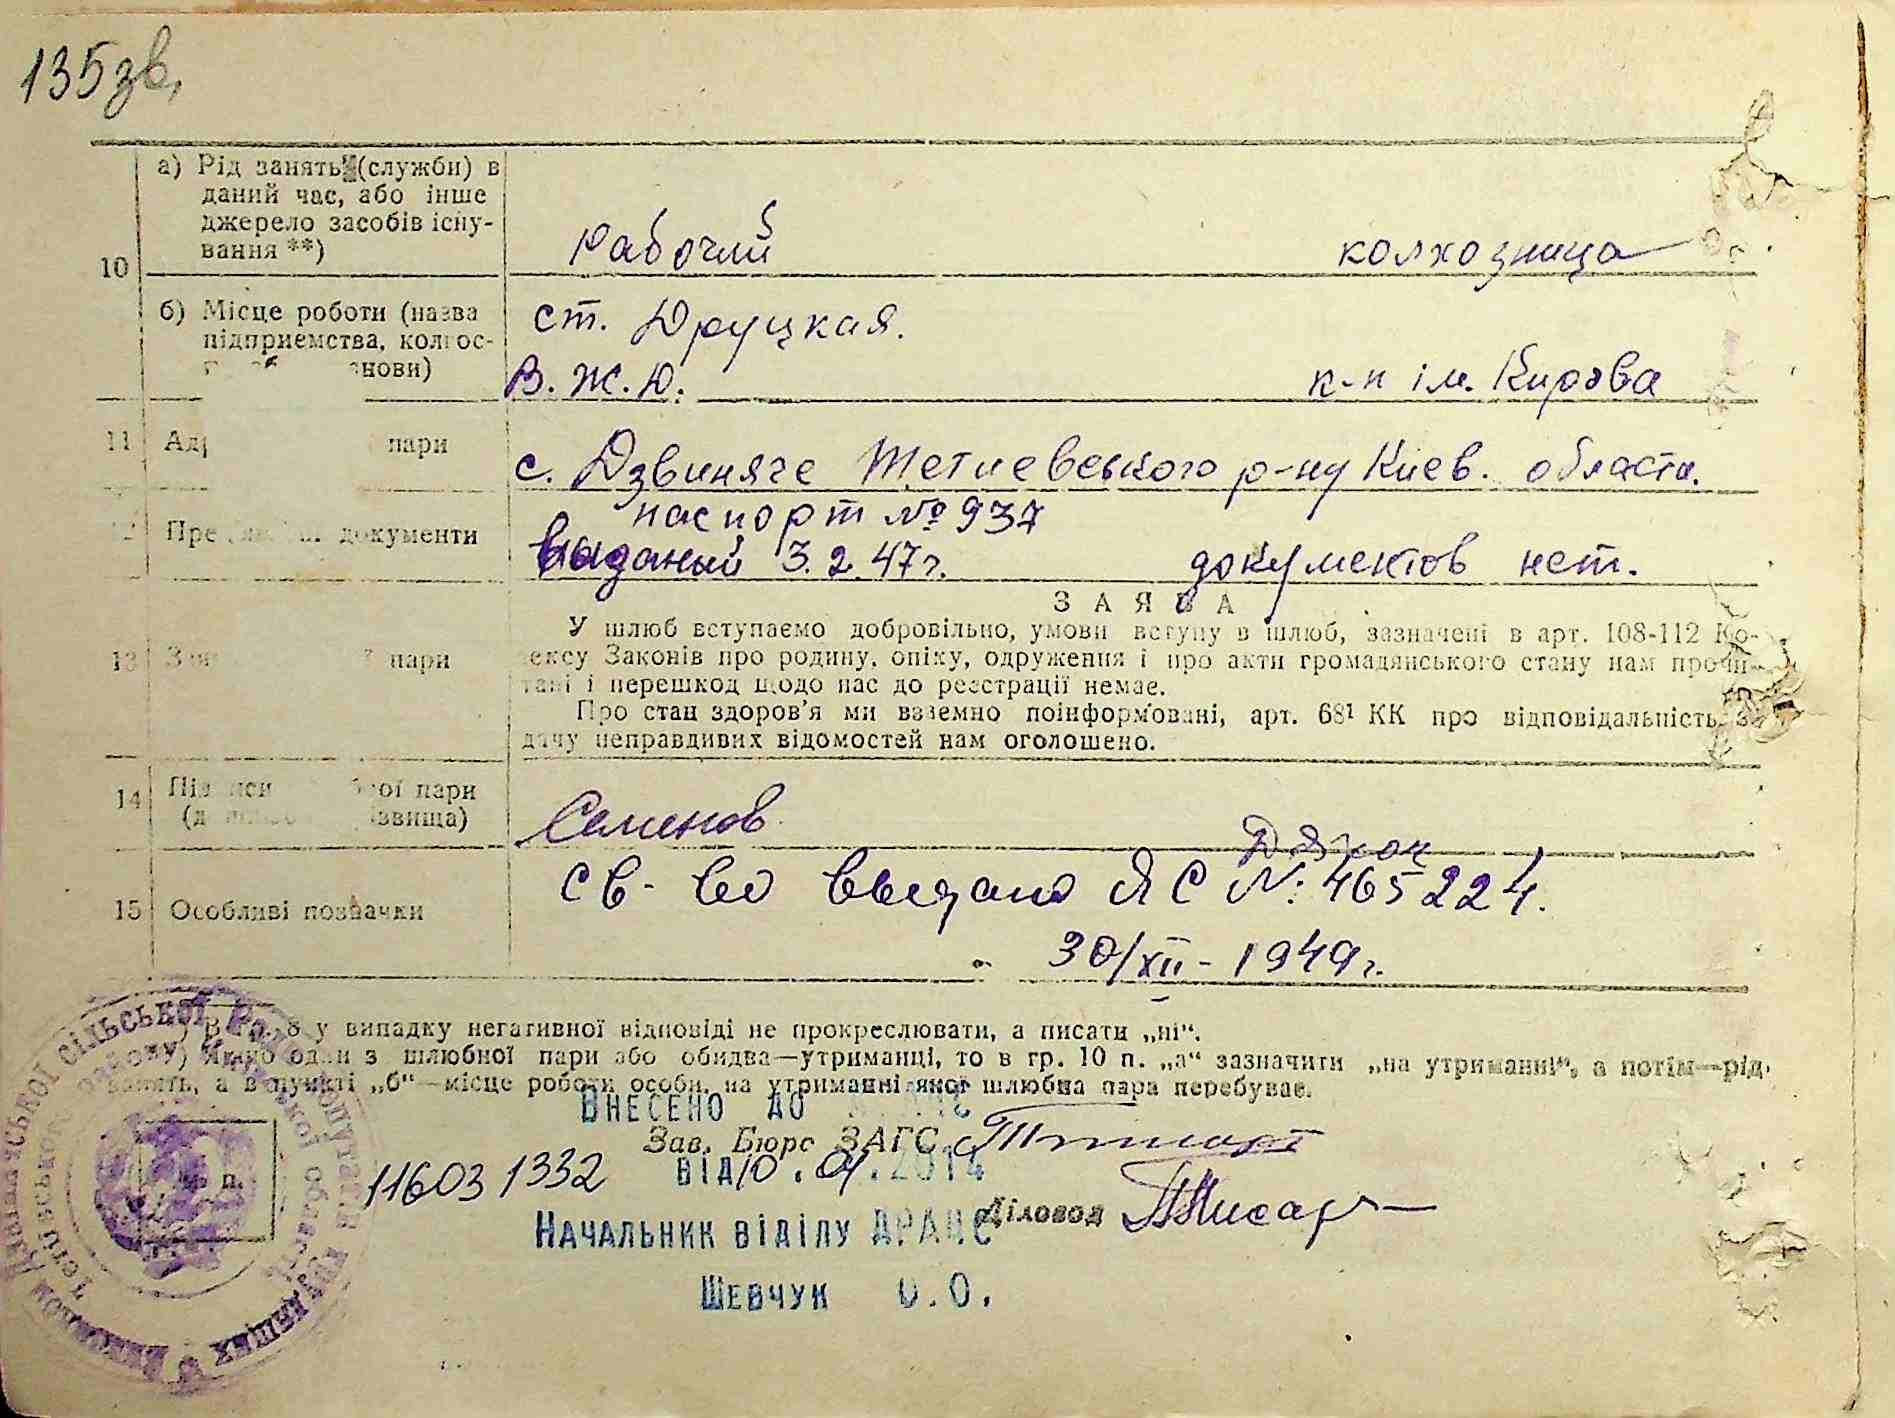 135зв.
10
а) Рід занять (служби) в
даний час, або інше
джерело засобів існу-
вання **)
Рабочий колхозница
б) Місце роботи (назва
підприємства, колгос-
нови)
ст. Друцкая.
В. Ж. Ю. к-п ім. Кирова
11 пари
с. Дзвиняче Тетиевського р-ну Киев. области.
паспорт № 937
12 документи
выданый 3.2.47г. документов нет.
ЗАЯВА
13 пари
У шлюб вступаємо добровільно, умови вступу в шлюб, зазначені в арт. 108-112 Ко-
дексу Законів про родину, опіку, одруження і про акти громадянського стану нам прочи-
тані і перешкод щодо нас до реєстрації немає.
Про стан здоров'я ми взаємно поінформовані, арт. 68¹ КК про відповідальність за
дачу неправдивих відомостей нам оголошено.
14 пари
звища)
Семенов
Дякон
15 Особливі позначки
св-во выдано ЯС №: 465224.
30/XII - 1949г.
у випадку негативної відповіді не прокреслювати, а писати „ні“.
Якщо один з шлюбної пари або обидва—утриманці, то в гр. 10 п. „а“ зазначити „на утриманні“, а потім—рід
занять, а в пункті „б“—місце роботи особи, на утриманні якої шлюбна пара перебуває.
Внесено до
Зав. Бюро ЗАГС
11603 1332 від 10.01.2014
м. п.
Діловод
Начальник відділу ДРАЦС
Шевчук О.О.